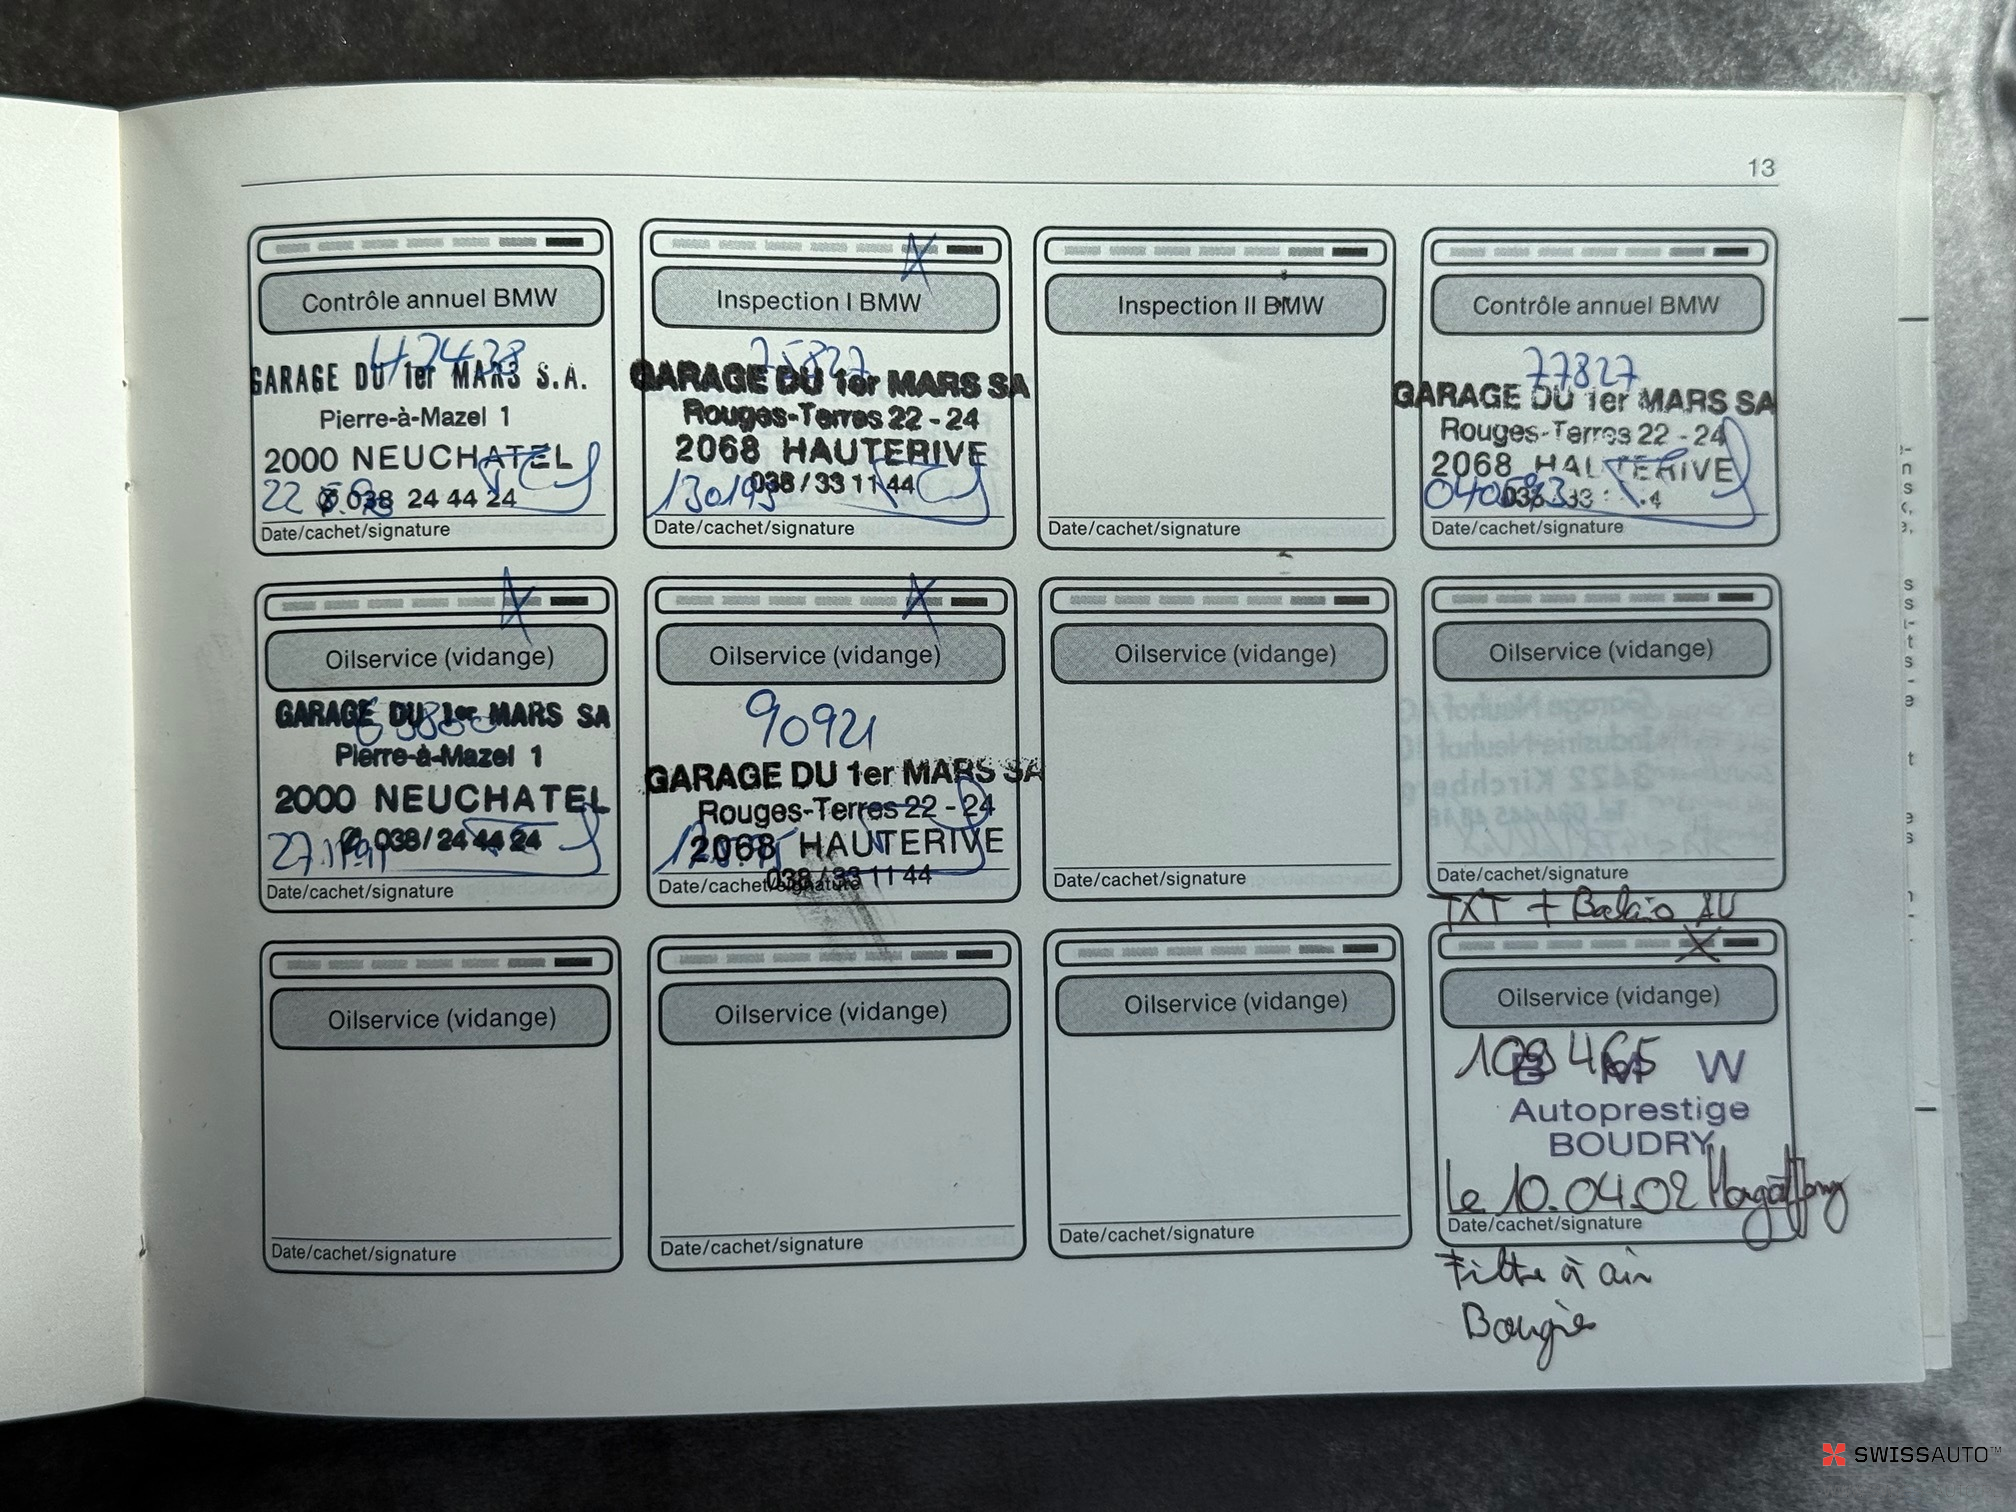 13
Contrôle annuel BMW
47438
GARAGE DU 1er MARS S.A.
Pierre-à-Mazel 1
2000 NEUCHATEL
038 24 44 24
Date/cachet/signature
Inspection I BMW
75827
GARAGE DU 1er MARS SA
Rouges-Terres 22 - 24
2068 HAUTERIVE
038 / 33 11 44
130193
Date/cachet/signature
Inspection II BMW
Date/cachet/signature
Contrôle annuel BMW
77827
GARAGE DU 1er MARS SA
Rouges-Terres 22 - 24
2068 HAUTERIVE
Date/cachet/signature
Oilservice (vidange)
GARAGE DU 1er MARS SA
Pierre-à-Mazel 1
2000 NEUCHATEL
038/24 44 24
Date/cachet/signature
Oilservice (vidange)
90921
GARAGE DU 1er MARS SA
Rouges-Terres 22 - 24
2068 HAUTERIVE
038 / 33 11 44
Date/cachet/signature
Oilservice (vidange)
Date/cachet/signature
Oilservice (vidange)
Date/cachet/signature
Oilservice (vidange)
Date/cachet/signature
Oilservice (vidange)
Date/cachet/signature
Oilservice (vidange)
Date/cachet/signature
TXT +
Oilservice (vidange)
109465
B M W
Autoprestige
BOUDRY
Le 10.04.02
Date/cachet/signature
Filtre à air
Bougies
SWISSAUTO™